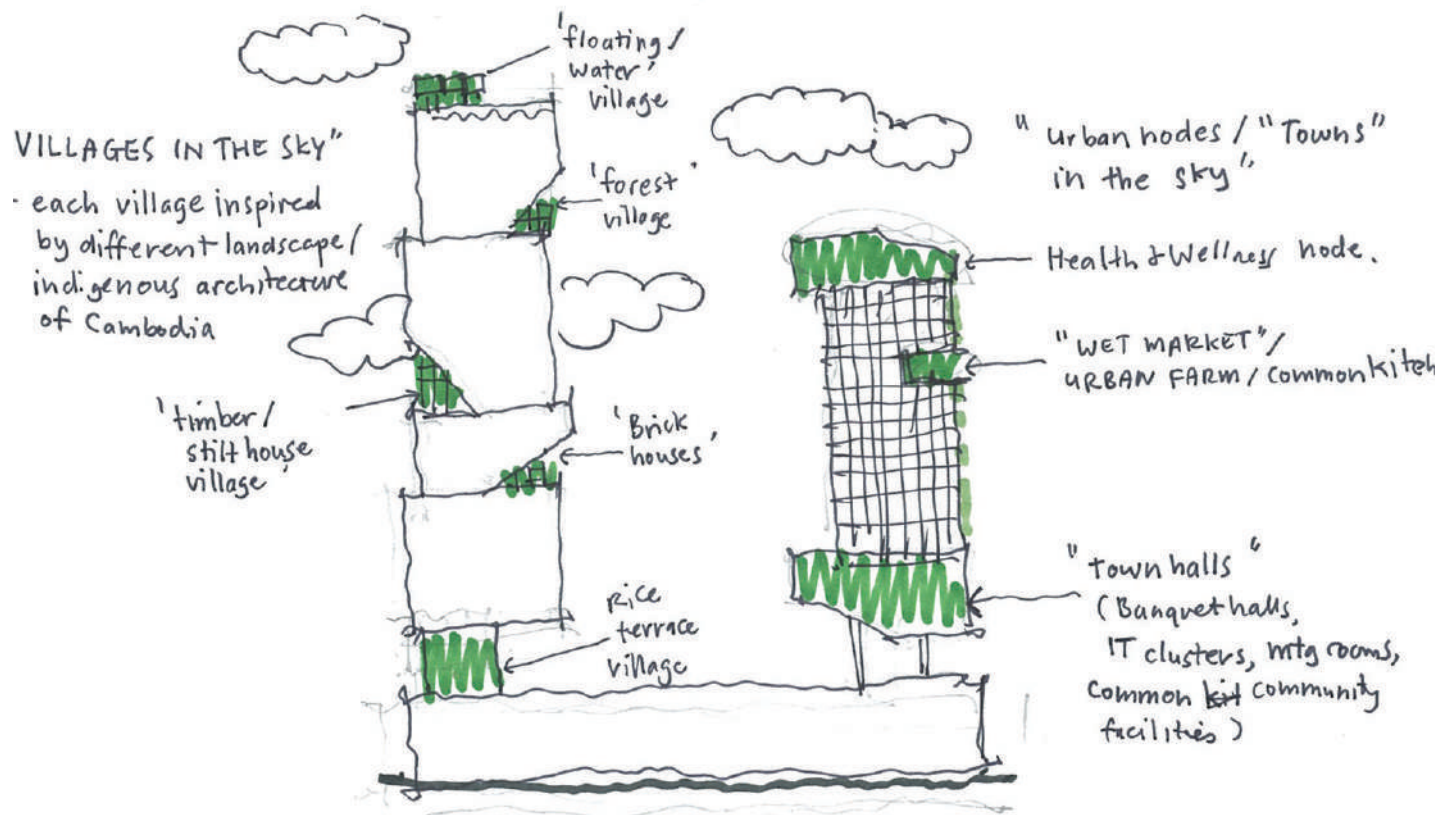 VILLAGES IN THE SKY"
· each village inspired
by different landscape/
indigenous architecture
of Cambodia
'floating/
water'
village
'forest'
village
'timber/
stilt house
village'
'Brick
houses'
rice
terrace
village
"Urban nodes / "Towns"
in the sky"
Health & Wellness node.
"WET MARKET"/
URBAN FARM / Common kitch
"Town halls"
(Banquet halls,
IT clusters, mtg rooms,
common kit community
facilities)